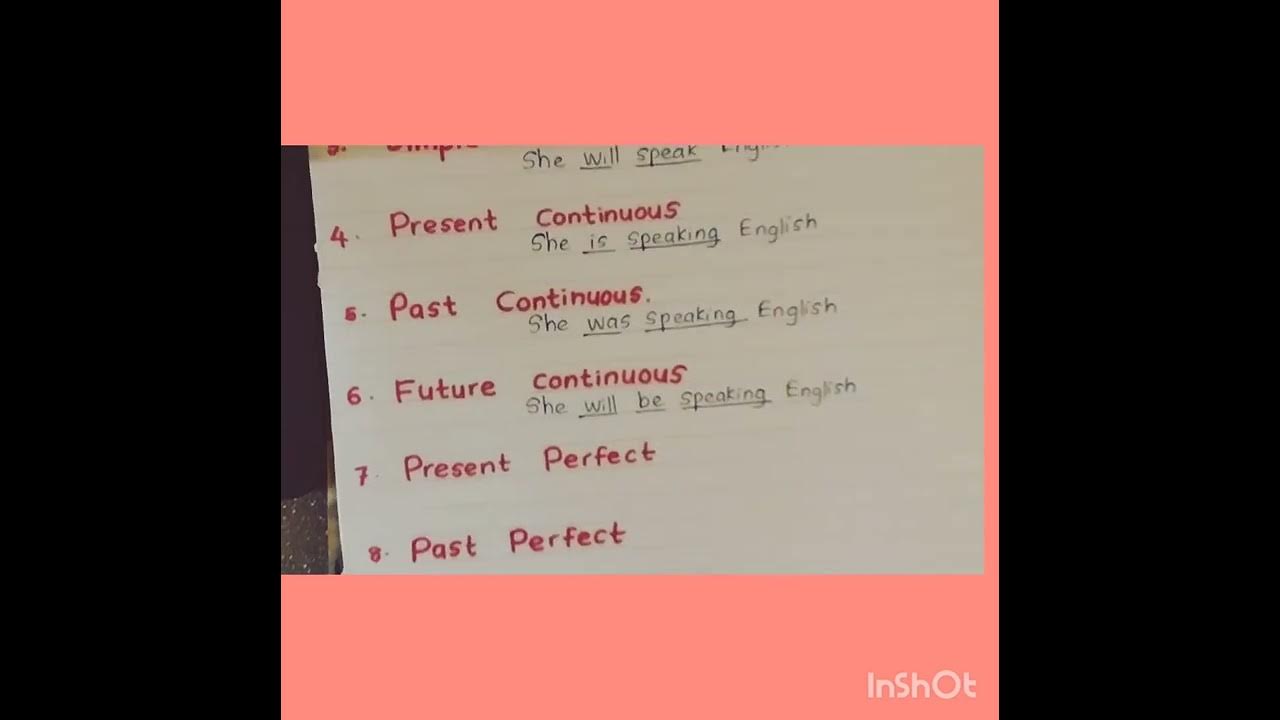 She will speak
4. Present Continuous
She is speaking English
5. Past Continuous.
She was speaking English
6. Future Continuous
She will be speaking English
7. Present Perfect
8. Past Perfect
InShOt